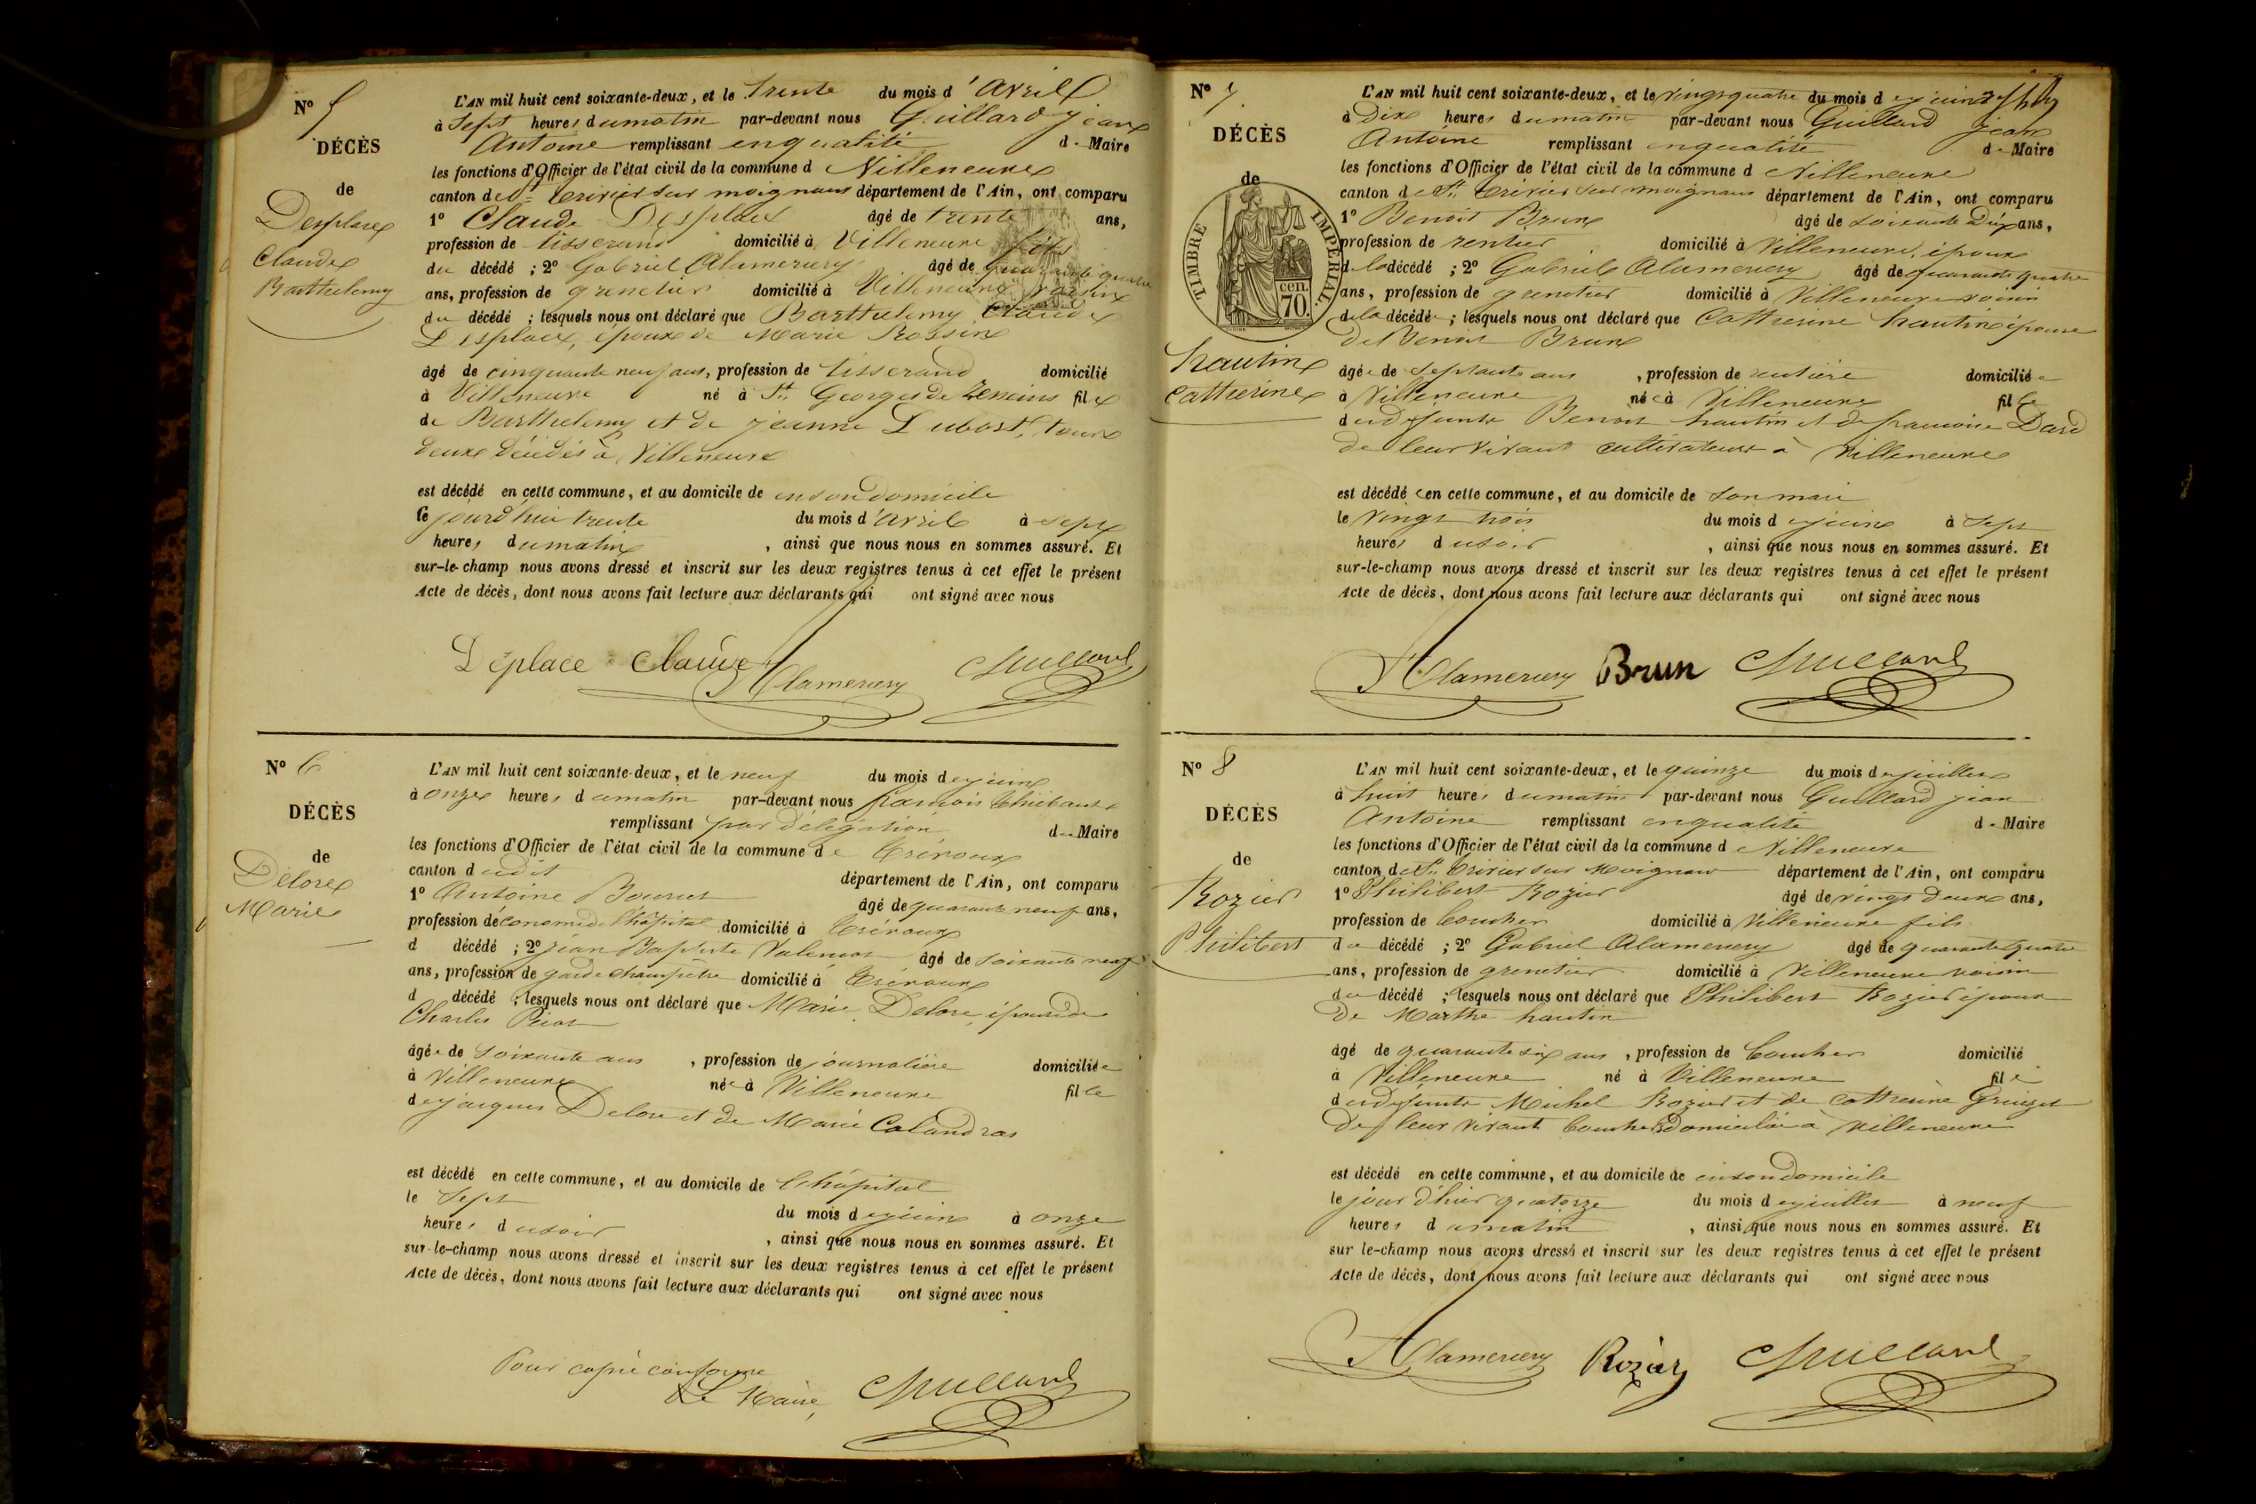 N° 5
DÉCÈS
de
Desplace
Claude
Barthelemy
L'AN mil huit cent soixante-deux, et le trente du mois d'avril
à sept heures du matin par-devant nous Guillard jean
Antoine remplissant en qualité de Maire
les fonctions d'Officier de l'état civil de la commune de Villeneuve
canton de St trivier sur moignans département de l'Ain, ont comparu
1° Claude Desplace âgé de trente ans,
profession de tisserand domicilié à Villeneuve fils
du décédé ; 2° Gabriel Alamercery âgé de quarante quatre
ans, profession de grenetier domicilié à Villeneuve voisin
du décédé ; lesquels nous ont déclaré que Barthelemy Claude
Desplace, époux de Marie Rossin
âgé de cinquante neuf ans, profession de tisserand domicilié
à Villeneuve né à St Georges de Reneins fils
de Barthelemy et de jeanne Dubost, tous
deux décédés à Villeneuve
est décédé en cette commune, et au domicile de en son domicile
le jourd'hui trente du mois d'avril à sept
heures du matin, ainsi que nous nous en sommes assuré. Et
sur-le-champ nous avons dressé et inscrit sur les deux registres tenus à cet effet le présent
Acte de décès, dont nous avons fait lecture aux déclarants qui ont signé avec nous
Déplace Claude Alamercery Guillard
N° 6
DÉCÈS
de
Delore
Marie
L'AN mil huit cent soixante-deux, et le neuf du mois de juin
à onze heures du matin par-devant nous françois thiébaut
remplissant par délégation de Maire
les fonctions d'Officier de l'état civil de la commune de trévoux
canton dudit département de l'Ain, ont comparu
1° Antoine âgé de quarante neuf ans,
profession d'économe de l'hôpital domicilié à trévoux
d décédé ; 2° jean Baptiste Valensot âgé de soixante neuf
ans, profession de garde champêtre domicilié à trévoux
d décédé ; lesquels nous ont déclaré que Marie Delore, épouse de
Charles
âgée de soixante ans, profession de journalière domiciliée
à Villeneuve née à Villeneuve fille
de jacques Delore et de Marie Calandras
est décédé en cette commune, et au domicile de l'hôpital
le sept du mois de juin à onze
heures du soir, ainsi que nous nous en sommes assuré. Et
sur-le-champ nous avons dressé et inscrit sur les deux registres tenus à cet effet le présent
Acte de décès, dont nous avons fait lecture aux déclarants qui ont signé avec nous
Pour copie conforme
Le Maire, Guillard
N° 7.
DÉCÈS
de
TIMBRE IMPÉRIAL.
70. cen.
hautin
Catherine
L'AN mil huit cent soixante-deux, et le vingt quatre du mois de juin
à Dix heures du matin par-devant nous Guillard jean
Antoine remplissant en qualité de Maire
les fonctions d'Officier de l'état civil de la commune de Villeneuve
canton de St trivier sur moignans département de l'Ain, ont comparu
1° Benoit Brun âgé de soixante Dix ans,
profession de rentier domicilié à Villeneuve, époux
de la décédé ; 2° Gabriel Alamercery âgé de quarante quatre
ans, profession de grenetier domicilié à Villeneuve voisin
de la décédée ; lesquels nous ont déclaré que Catherine hautin épouse
de Benoit Brun
âgée de septante ans, profession de rentière domiciliée
à Villeneuve née à Villeneuve fille
de défunts Benoit hautin et de françoise Dard
de leur vivant cultivateurs à Villeneuve
est décédée en cette commune, et au domicile de son mari
le vingt trois du mois de juin à sept
heures du soir, ainsi que nous nous en sommes assuré. Et
sur-le-champ nous avons dressé et inscrit sur les deux registres tenus à cet effet le présent
Acte de décès, dont nous avons fait lecture aux déclarants qui ont signé avec nous
Alamercery Brun Guillard
N° 8
DÉCÈS
de
Rozier
Philibert
L'AN mil huit cent soixante-deux, et le quinze du mois de juillet
à huit heures du matin par-devant nous Guillard jean
Antoine remplissant en qualité de Maire
les fonctions d'Officier de l'état civil de la commune de Villeneuve
canton de St trivier sur Moignans département de l'Ain, ont comparu
1° Philibert Rozier âgé de vingt deux ans,
profession de boucher domicilié à Villeneuve fils
du décédé ; 2° Gabriel Alamercery âgé de quarante quatre
ans, profession de grenetier domicilié à Villeneuve voisin
du décédé ; lesquels nous ont déclaré que Philibert Rozier époux
de Marthe hautin
âgé de quarante six ans, profession de boucher domicilié
à Villeneuve né à Villeneuve fils
de défunts Michel Rozier et de Catherine Greuzet
de leur vivant bouchers domiciliés à Villeneuve
est décédé en cette commune, et au domicile de en son domicile
le jour d'hier quatorze du mois de juillet à neuf
heures du matin, ainsi que nous nous en sommes assuré. Et
sur le-champ nous avons dressé et inscrit sur les deux registres tenus à cet effet le présent
Acte de décès, dont nous avons fait lecture aux déclarants qui ont signé avec nous
Alamercery Rozier Guillard